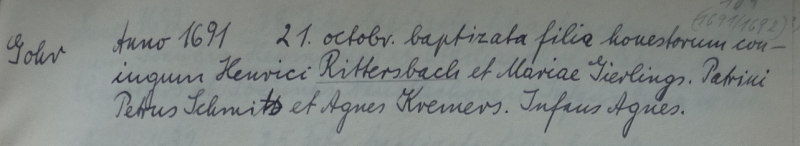 (1691/1692)
Gohr Anno 1691 21. octobr. baptizata filia honestorum con-
iugum Henrici Rittersbach et Mariae Gierlings. Patrini
Petrus Schmitz et Agnes Kremers. Infans Agnes.